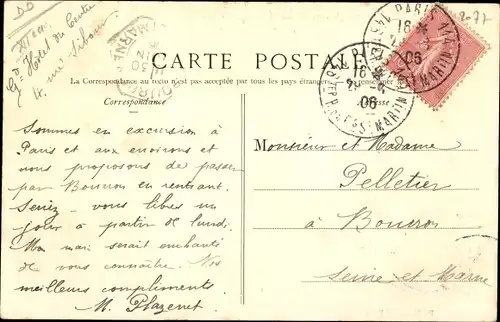 DD
2-77
Hôtel du Centre
CARTE POSTALE
La Correspondance au recto n'est pas acceptée par tous les pays étrangers
Correspondance
Sommes en excursion à
Paris et aux environs et
nous proposons de passer
par Bourron en rentrant.
Seriez-vous libres un
jour à partir de lundi.
Mon mari serait enchanté
de vous connaître. Nos
meilleurs compliments
M. Plazenet
PARIS
16
06
Monsieur et Madame
Pelletier
à Bourron
Seine et Marne